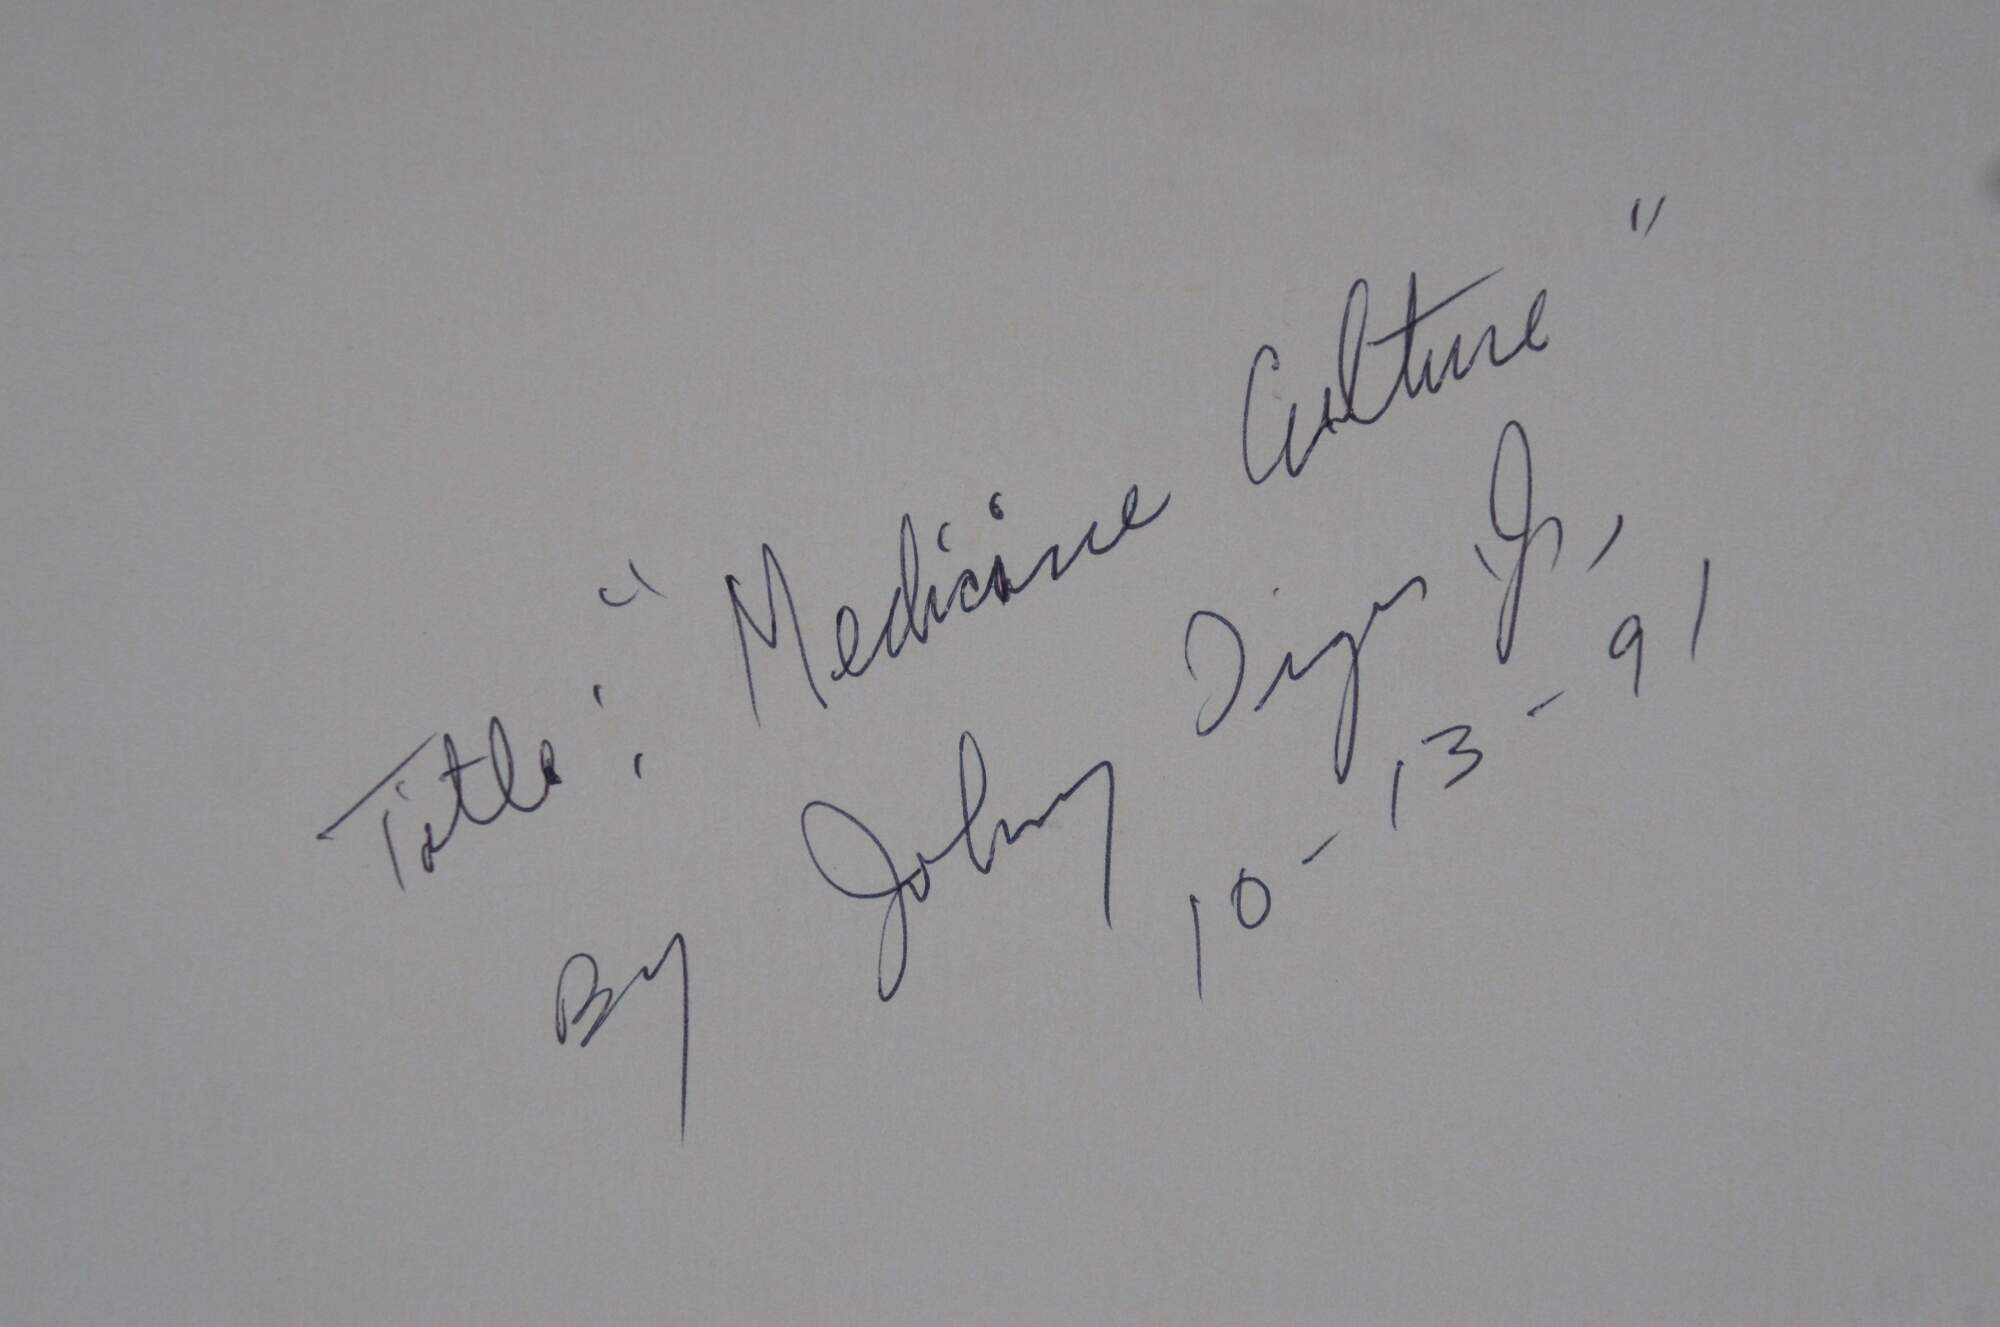 Title: "Medicine Culture"
By Johnny Tiger Jr.
10-13-91